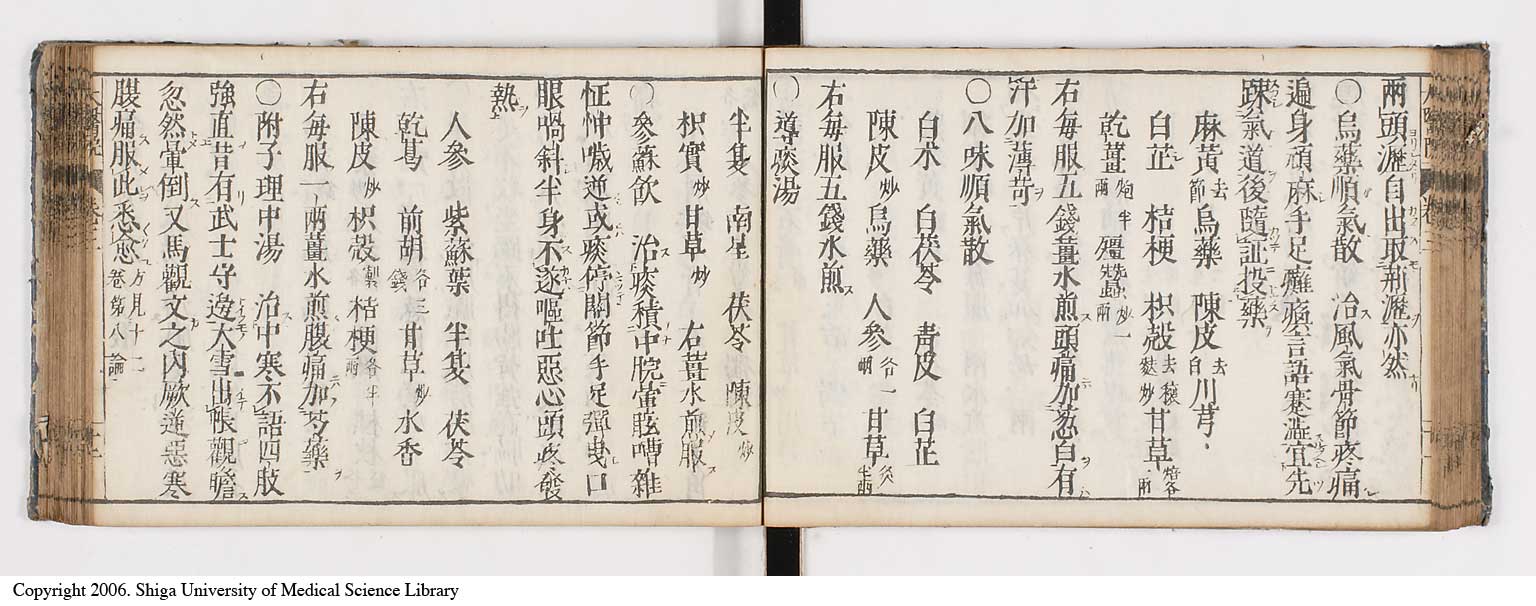 兩頭瀝自出取荊瀝亦然
○烏藥順氣散　治風氣骨節疼痛
遍身頑麻手足癱瘓言語蹇澁宜先
踈氣道後隨証投藥
麻黃去節　烏藥　陳皮去白　川芎
白芷　桔梗　枳殻去穰麩炒　甘草焙各一兩
乾薑炮半兩　殭蠶炒一兩
右毎服五錢薑水煎頭痛加葱白有
汗加薄苛
○八味順氣散
白朮　白茯苓　靑皮　白芷
陳皮炒　烏藥　人參各一兩　甘草炙半兩
右毎服五錢水煎
○導痰湯
半夏　南星　茯苓　陳皮炒
枳實炒　甘草炒　右薑水煎服
○參蘇飮　治痰積中脘暈眩嘈雜
怔忡噦逆或痰停關節手足嚲曳口
眼喎斜半身不遂嘔吐惡心頭疼發
熱
人參　紫蘇葉　半夏　茯苓
乾葛　前胡各三錢　甘草炒　木香
陳皮炒　枳殻製　桔梗各半兩
右毎服一兩薑水煎腹痛加芍藥
○附子理中湯　治中寒不語四肢
強直昔有武士守邊大雪出帳觀瞻
忽然暈倒又馬觀文之内厥逆惡寒
腹痛服此悉愈方見十二卷第八論
Copyright 2006. Shiga University of Medical Science Library